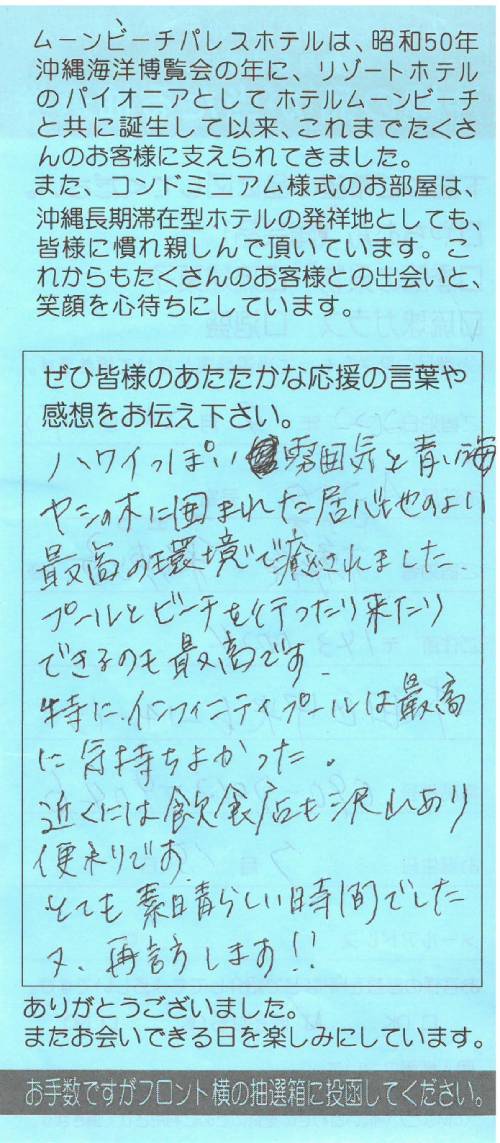 ムーンビーチパレスホテルは、昭和50年
沖縄海洋博覧会の年に、リゾートホテル
のパイオニアとしてホテルムーンビーチ
と共に誕生して以来、これまでたくさ
んのお客様に支えられてきました。
また、コンドミニアム様式のお部屋は、
沖縄長期滞在型ホテルの発祥地としても、
皆様に慣れ親しんで頂いています。こ
れからもたくさんのお客様との出会いと、
笑顔を心待ちにしています。
ぜひ皆様のあたたかな応援の言葉や
感想をお伝え下さい。
ハワイっぽい雰囲気と青い海
ヤシの木に囲まれた居心地のよい
最高の環境で癒されました。
プールとビーチを行ったり来たり
できるのも最高です。
特に、インフィニティプールは最高
に気持ちよかった。
近くには飲食店も沢山あり
便利です。
とても素晴らしい時間でした
又、再訪します!!
ありがとうございました。
またお会いできる日を楽しみにしています。
お手数ですがフロント横の抽選箱に投函してください。